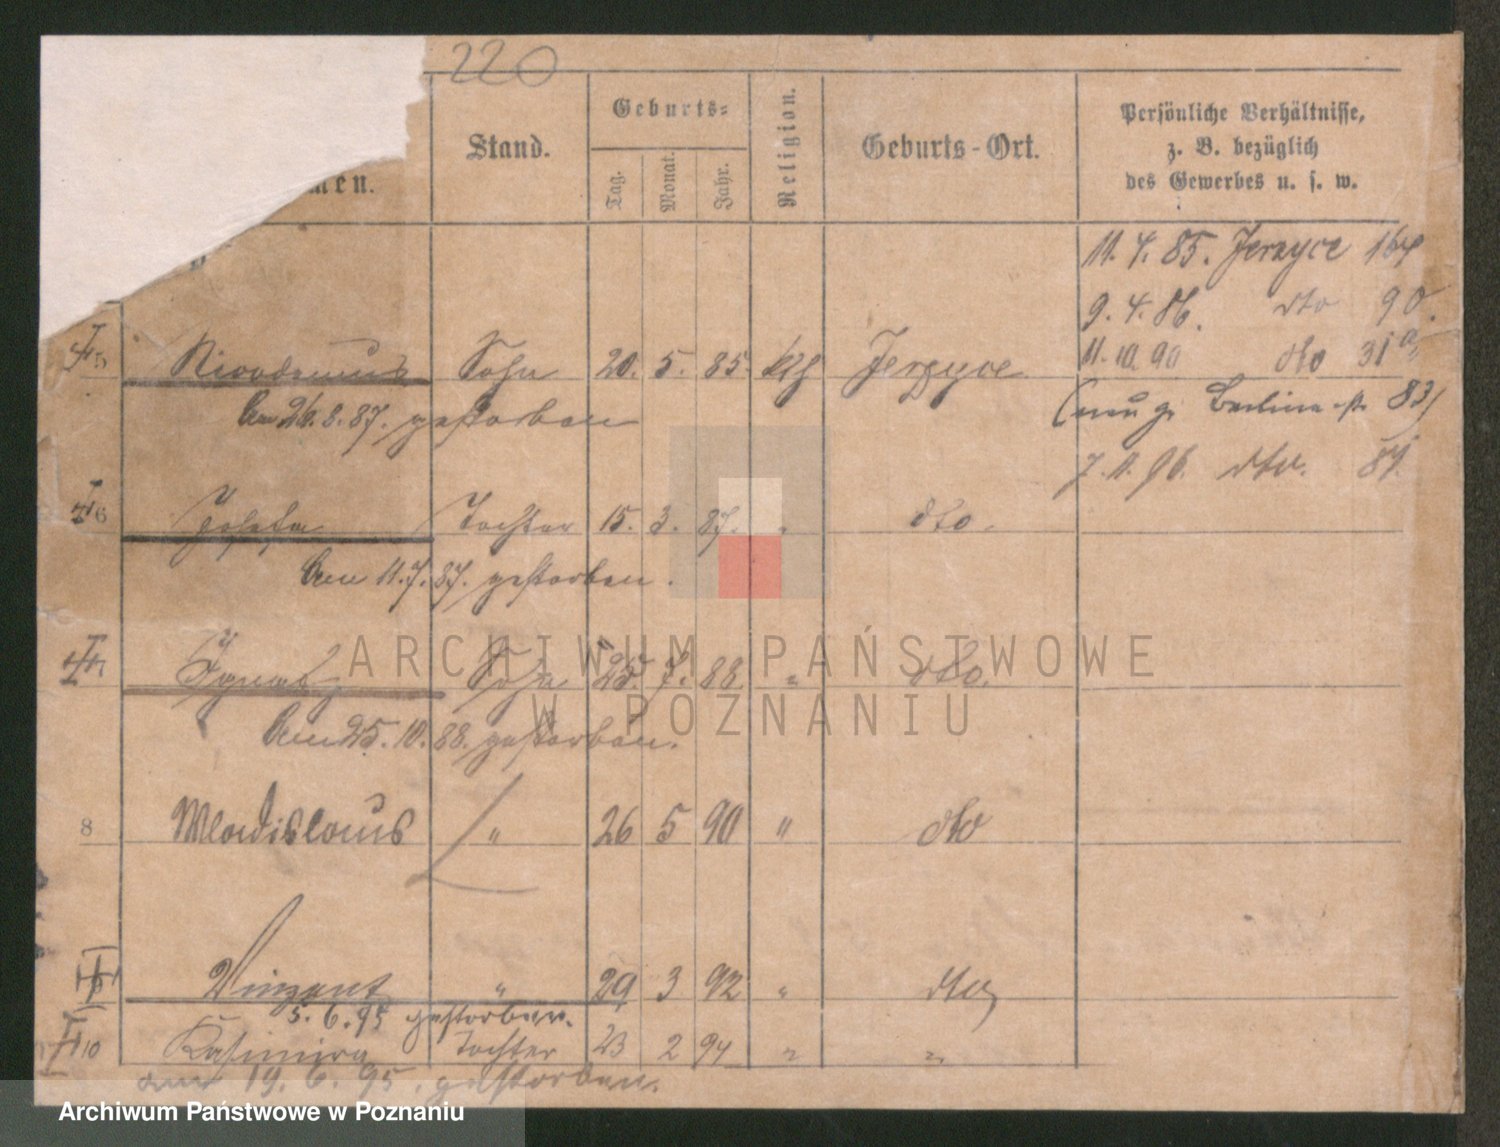 220
men.
Stand.
Geburts-
Tag.
Monat.
Jahr.
Religion.
Geburts-Ort.
Persönliche Verhältnisse,
z. B. bezüglich
des Gewerbes u. s. w.
11. 4. 85. Jerzyce 164
9. 4. 86. dto 90.
5 Nicodemus Sohn 20. 5. 85. kth Jerzyce 11. 10. 90 dto 31a
Am 26. 8. 87. gestorben
(neu gz Berliner-st. 83)
7. 11. 96. dto. 84.
6 Josefa Tochter 15. 3. 87. " dto.
Am 11. 7. 87. gestorben.
7 Ignatz Sohn 25. 7. 88 " dto.
Am 25. 10. 88. gestorben.
8 Wladislaus " 26 5 90 " dto
Vinzent " 29 3 92 " dto
5. 6. 95 gestorben.
10 Kasimira Tochter 23 2 94 " "
am 19. 6. 95. gestorben.
ARCHIWUM PAŃSTWOWE
W POZNANIU
Archiwum Państwowe w Poznaniu